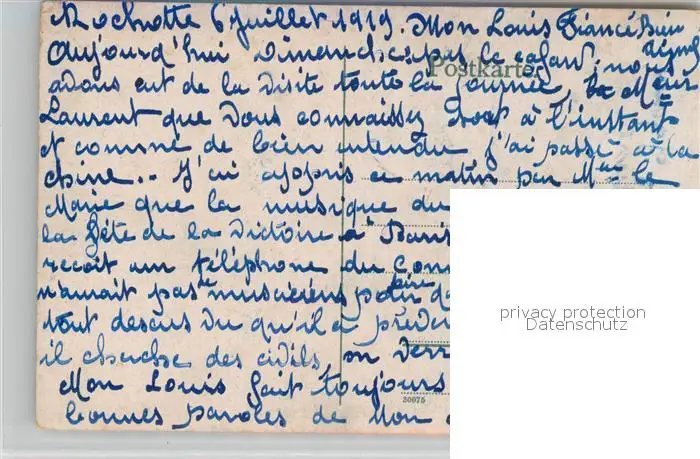 Rochotte 6 Juillet 1919. Mon Louis Fiancé Bien
aimé
Aujourd'hui Dimanche pas le cafard. nous
Postkarte
avons eut de la visite toute la journée, Meur
Laurent que vous connaissez à l'instant
et comme de bien entendu j'ai passé à la
chine.. J'ai appris ce matin par Meur le
Maire que la musique du
la Fête de la Victoire à Paris
recoit un téléphone du
n'aurait pas de musiciens pour
tout dessus du qu'il a
il cherche des civils, on verr
Mon Louis fait toujours
bonnes paroles de Mon
30075
privacy protection
Datenschutz